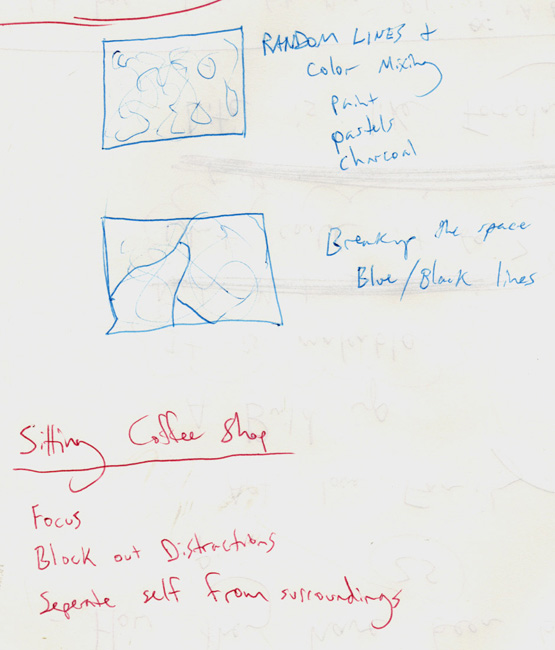 RANDOM LINES +
Color Mixing
paint
pastels
charcoal
Breakup the space
Blue/Black lines
Sitting Coffee Shop
Focus
Block out Distractions
Seperate self from surroundings